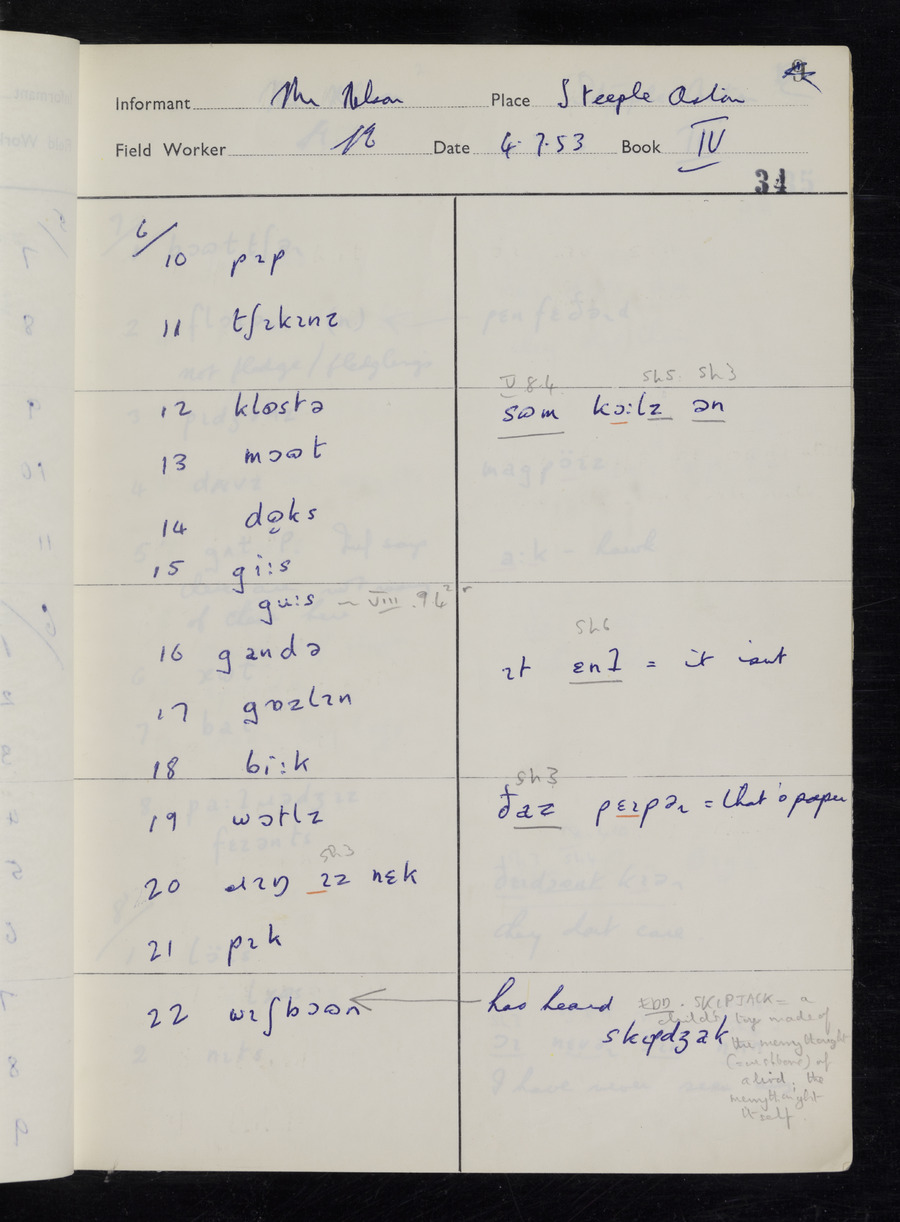 Informant Mr Nelson Place Steeple Aston
Field Worker Date 4.7.53 Book IV
34
6/
10 pɪp
11 tʃɪkɪnz
12 klɒstə
V 8.4 Sh5. Sh3
sɷm kɔ:lz ən
13 mɔɷt
14 dɷks
15 gi:s
gu:s ~ VIII.9.6²
16 gandə
Sh6
ɪt ɛnʔ = it isnt
17 gɒzlɪn
18 bi:k
19 wɒtlz
Sh3
ðaz pɛɪpəɹ = that's paper
20 ɹɪŋ ɪz nɛk
Sh3
21 pɪk
22 wɪʃbɔɷn
has heard
skɪpdʒak
EDD. SKIPJACK = a
child's toy made of
the merrythought
(= wishbone) of
a bird; the
merrythought
itself